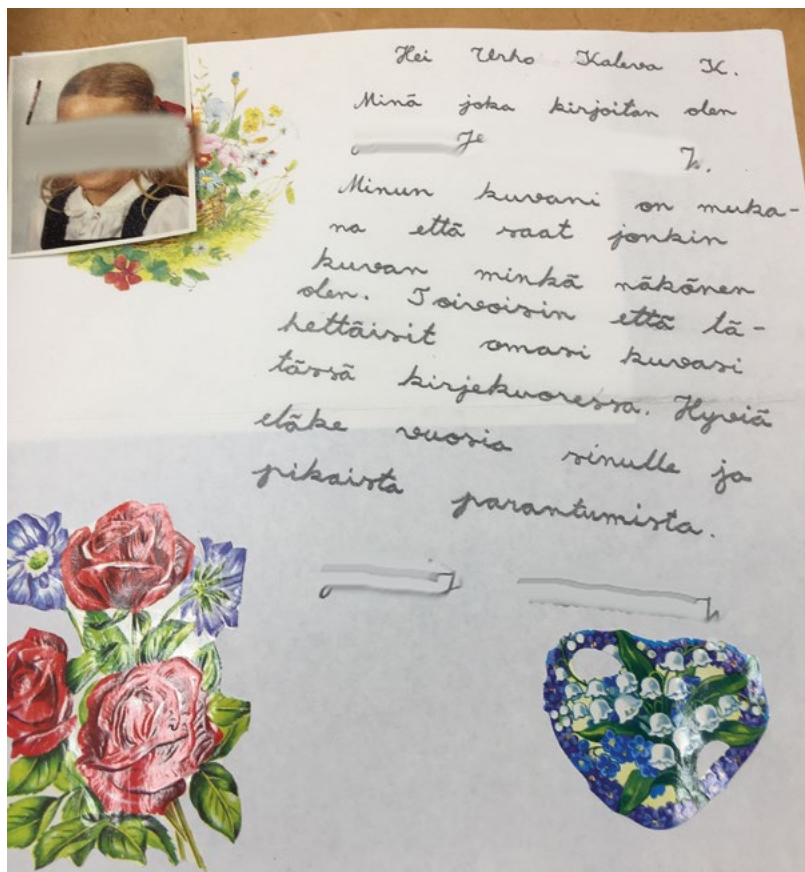 Hei Urho Kaleva K.
Minä joka kirjoitan olen
Je K.
Minun kuvani on muka-
na että saat jonkin
kuvan minkä näkönen
olen. Toivoisin että lä-
hettäisit omasi kuvasi
tässä kirjekuoressa. Hyviä
eläke vuosia sinulle ja
pikaista parantumista.